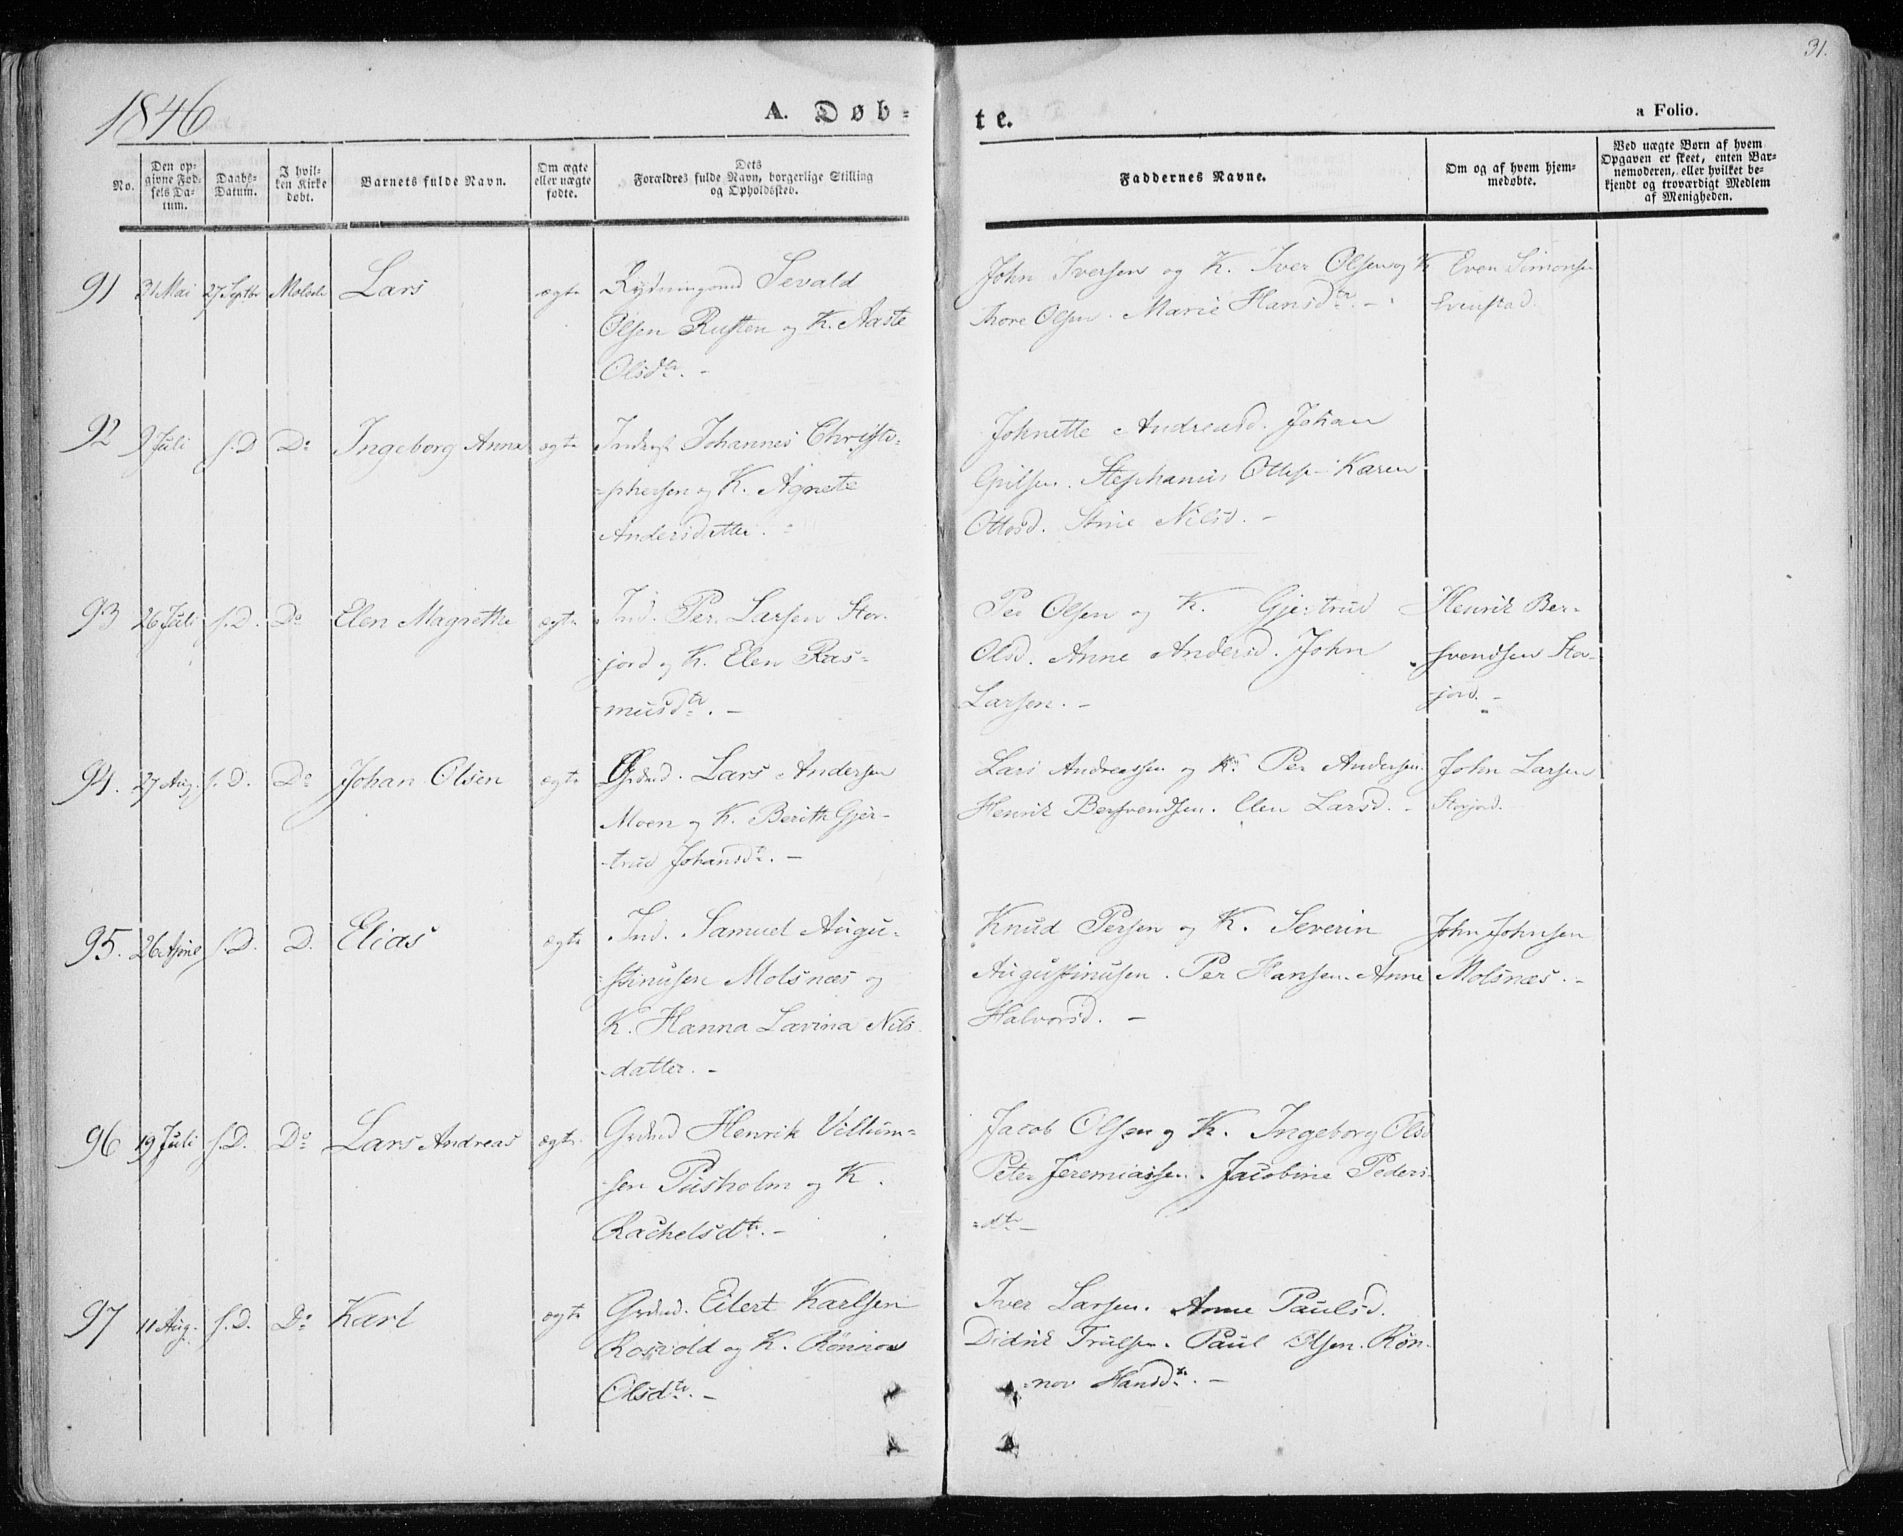 1846
31.
A. Døb-
te.
a Folio.
No.
Den op-
givne Fød-
sels Da-
tum.
Daabs-
Datum.
I hvil-
ken Kirke
døbt.
Barnets fulde Navn.
Om ægte
eller uægte
fødte.
Dets
Forældres fulde Navn, borgerlige Stilling
og Opholdssted.
Faddernes Navne.
Om og af hvem hjem-
medøbte.
Ved uægte Børn af hvem
Opgaven er skeet, enten Bar-
nemoderen, eller hvilket be-
kjendt og troværdigt Medlem
af Menigheden.
91 31 Mai 27 Septbr Lars ægte
Rydningsmd Sevald
Olsen Rusten og K. Aaste
Olsdtr. -
John Iversen og K. Iver Olsen og K
Thore Olsen. Marie Hansdtr. -
Even Simonsen
Evenstad.
92 9 Juli s.D. Do Ingeborg Anna ægte
Inderst Johannes Christo-
-phersen og K. Agnete
Andersdatter. -
Johnette Andreasd. Johan
Stephanus Ottesen Karen
Ottosd. Stine Nilsd. -
93 26 Juli s.D. Do Elen Magrethe ægte
Ind. Per Larsen Stor-
jord og K. Elen Ras-
musdtr. -
Per Olsen og K. Gjertrud
Olsd. Anne Andersd. John
Larsen. -
Henrik Ber-
svendsen Stor-
jord. -
94. 27 Aug. s.D. Do Johan Olsen ægte
Grdmd. Lars Andersen
Moen og K. Berith Gjer-
-trud Johansdtr. -
Lars Andreassen og K. Per Andersen.
Henrik Bersvendsen. Elen Larsd. -
John Larsen
Storjord.
95. 26 April s.D. D. Elias ægte
Ind. Samuel Augu-
stinusen Molsnæs og
K. Hanna Lavina Nils-
datter. -
Knud Persen og K. Severin
Augustinusen. Per Hansen. Anne
Halvorsd. -
John Johnsen
Molsnæs. -
96 19 Juli s.D. Do Lars Andreas ægte
Grdmd Henrik Villum-
sen Påsholm og K.
Rachelsdtr. -
Jacob Olsen og K. Ingeborg Olsd
Peter Jeremiassen. Jacobine Peders-
-dtr -
97 11 Aug. s.D. Do Karl ægte
Grdmd. Eilert Karlsen
Rosvold og K. Rønnov
Olsdtr. -
Iver Larsen. Anne Paulsd.
Didrik Trulsen. Paul Olsen. Røn-
nov Hansdtr. -